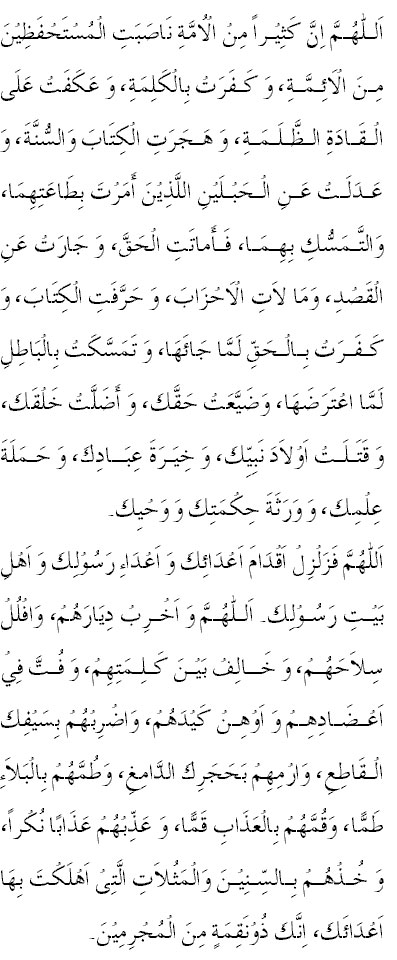 اَللّٰهُمَّ اِنَّ كَثِيْراً مِنْ الْاُمَّةِ نَاصَبَتِ الْمُسْتَحْفَظِيْنَ
مِنَ الْاَئِمَّةِ، وَ كَفَرَتْ بِالْكَلِمَةِ، وَ عَكَفَتْ عَلَى
الْقَادَةِ الظَّلَمَةِ، وَ هَجَرَتِ الْكِتَابَ وَالسُّنَّةَ، وَ
عَدَلَتْ عَنِ الْحَبْلَيْنِ اللَّذِيْنَ أَمَرْتَ بِطَاعَتِهِمَا،
وَالتَّمَسُّكِ بِهِمَا، فَأَماتَتِ الْحَقَّ، وَ جَارَتْ عَنِ
الْقَصْدِ، وَمَا لاَتِ الْاَحْزَابَ، وَ حَرَّفَتِ الْكِتَابَ، وَ
كَفَرَتْ بِالْحَقِّ لَمَّا جَائَهَا، وَ تَمَسَّكَتْ بِالْبَاطِلِ
لَمَّا اعْتَرَضَهَا، وَضَيَّعَتْ حَقَّكَ، وَ أَضَلَّتْ خَلْقَكَ،
وَ قَتَلَتْ اَوْلاَدَ نَبِيِّكَ، وَ خِيَرَةَ عِبَادِكَ، وَ حَمَلَةَ
عِلْمِكَ، وَ وَرَثَةَ حِكْمَتِكَ وَ وَحْيِكَ.
اَللّٰهُمَّ فَزَلْزِلْ اَقْدَامَ اَعْدَائِكَ وَ اَعْدَاءِ رَسُوْلِكَ وَ اَهْلِ
بَيْتِ رَسُوْلِكَ. اَللّٰهُمَّ وَ اَخْرِبْ دِيَارَهُمْ، وَافْلُلْ
سِلاَحَهُمْ، وَ خَالِفْ بَيْنَ كَلِمَتِهِمْ، وَ فُتَّ فِيْ
اَعْضَادِهِمْ وَ اَوْهِنْ كَيْدَهُمْ، وَاضْرِبْهُمْ بِسَيْفِكَ
الْقَاطِعِ، وَارْمِهِمْ بَحَجَرِكَ الدَّامِغِ، وَطُمَّهُمْ بِالْبَلاَءِ
طَمًّا، وَقُمَّهُمْ بِالْعَذَابِ قَمًّا، وَ عَذِّبْهُمْ عَذَابًا نُكْراً،
وَ خُذْهُمْ بِالسِّنِيْنَ وَالْمَثُلاَتِ الَّتِيْ اَهْلَكْتَ بِهَا
اَعْدَائَكَ، اِنَّكَ ذُوْنَقِمَةٍ مِنَ الْمُجْرِمِيْنَ.